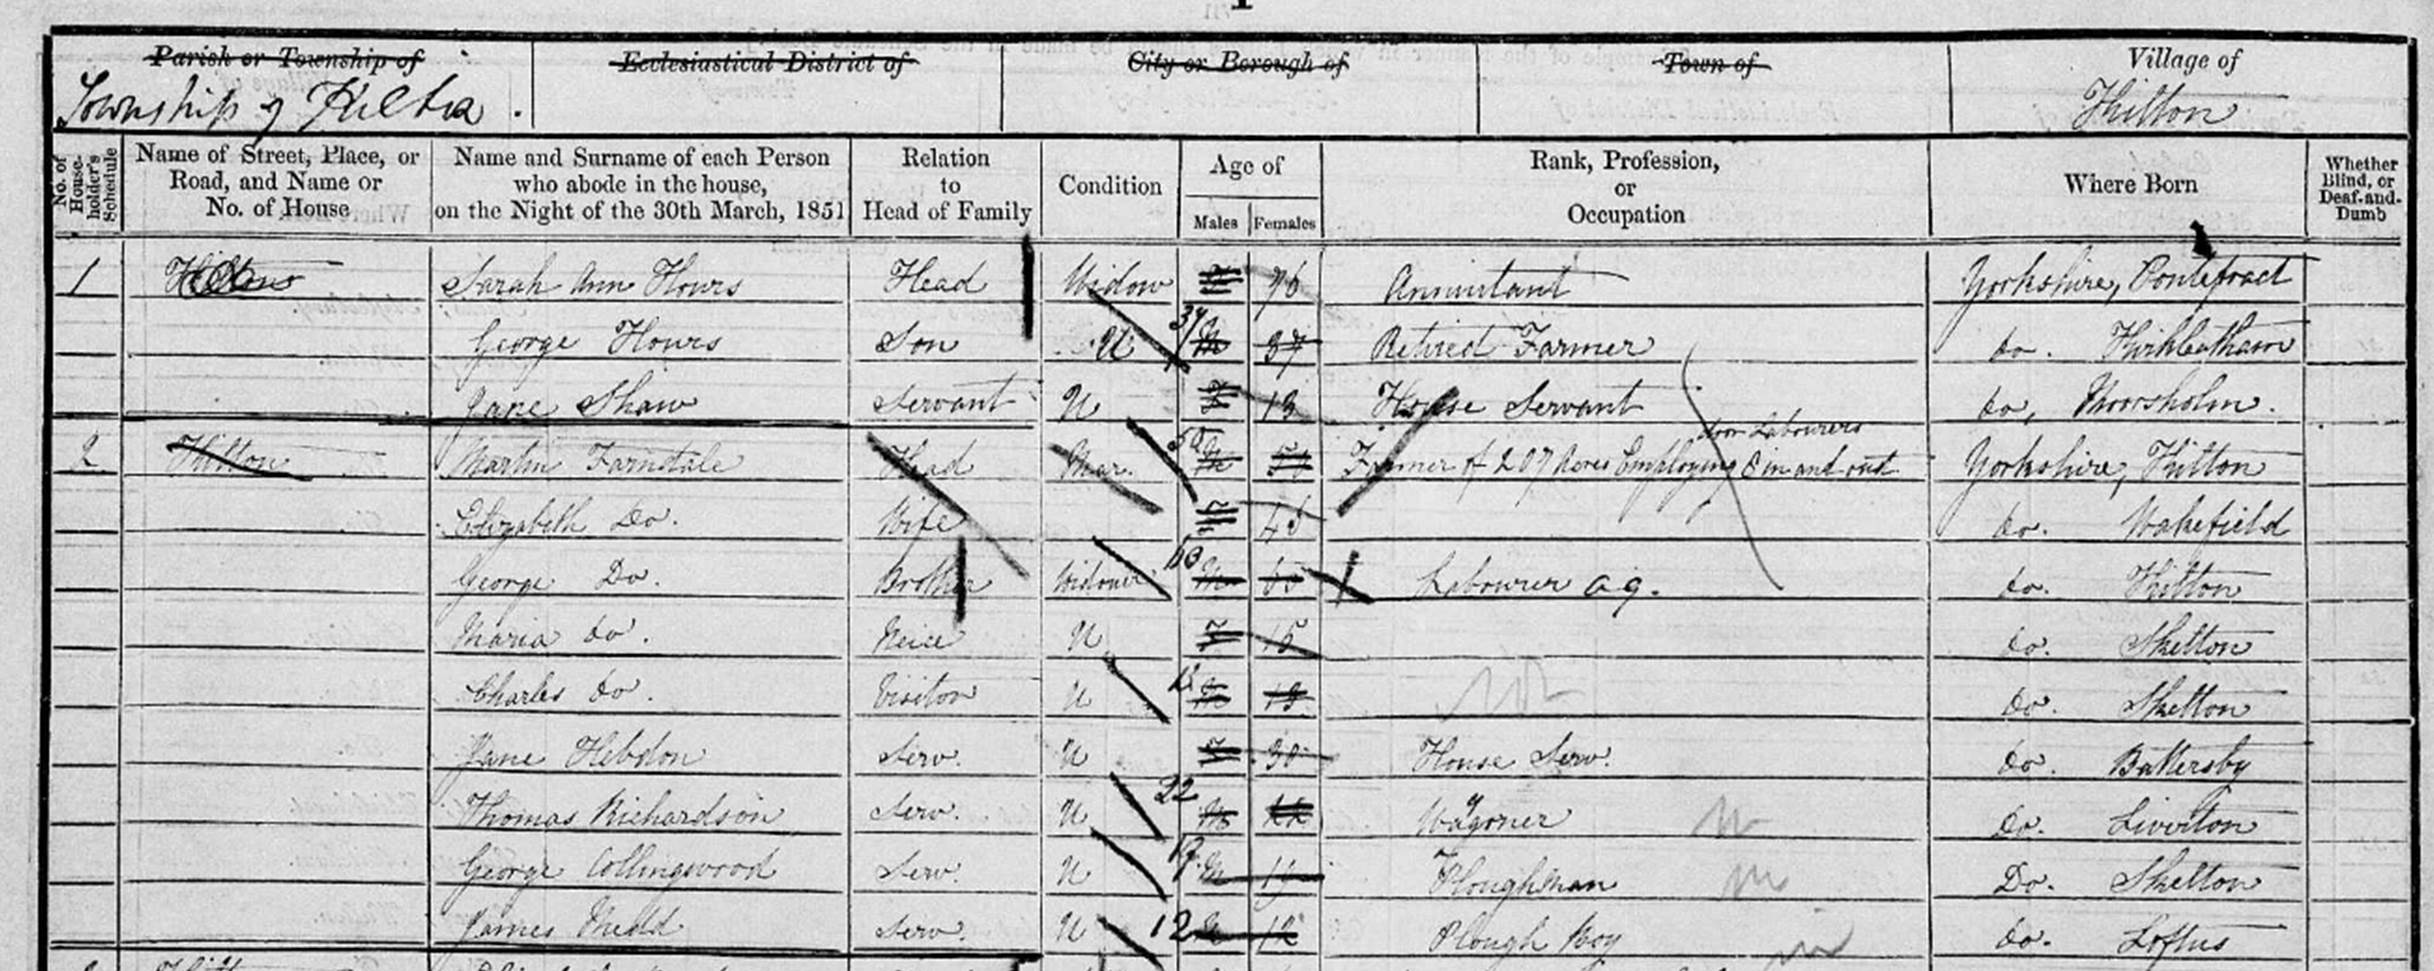 Parish or Township of Ecclesiastical District of City or Borough of Town of Village of
Township of Kilton
No. of House-holder's Schedule
Name of Street, Place, or Road, and Name or No. of House
Name and Surname of each Person who abode in the house, on the Night of the 30th March, 1851
Relation to Head of Family
Condition
Age of
Males Females
Rank, Profession, or Occupation
Where Born
Whether Blind, or Deaf-and-Dumb
1 Sarah Ann Head Widow 76 Annuitant Yorkshire, Pontefract
George Son U 37 37 Retired Farmer do. Kirkleatham
Jane Shaw Servant U 13 House Servant do, Moorsholm.
2 Kilton Martin Farndale Head Mar. Farmer of 207 Acres Employing 8 in and out door Labourers Yorkshire, Kilton
Elizabeth Do. Wife do. Wakefield
George Do. Brother Widower Labourer ag. do. Kilton
Maria do. Neice U 15 do. Skelton
Charles do. Visitor U do. Skelton
Jane Hebdon Serv. U 30 House Serv. do. Battersby
Thomas Richardson Serv. U 22 Wagoner do. Liverton
George Collingwood Serv. U Ploughman Do. Skelton
James Serv. U 12 12 Plough Boy do. Loftus